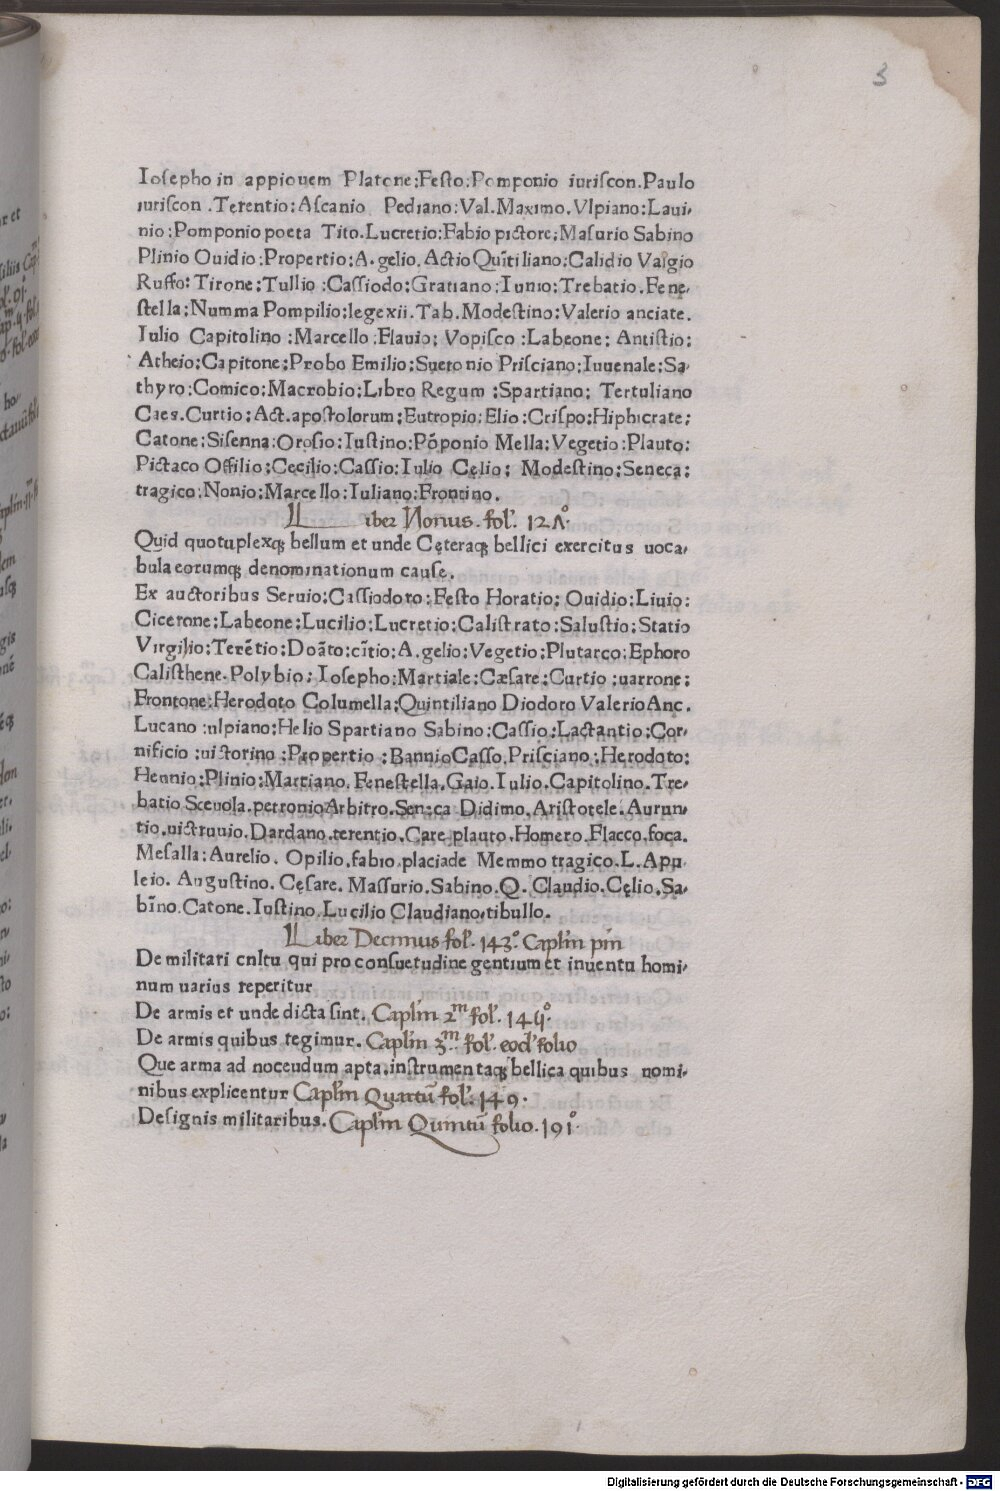 3
Iosepho in appionem Platone:Festo:Pomponio iuriscon.Paulo
iuriscon .Terentio:Ascanio Pediano:Val.Maximo.Vlpiano:Laui-
nio:Pomponio poeta Tito.Lucretio:Fabio pictore:Masurio Sabino
Plinio Ouidio:Propertio:A.gelio.Actio Quītiliano:Calidio Valgio
Ruffo:Tirone:Tullio :Cassiodo:Gratiano:Iunio:Trebatio.Fene-
stella:Numma Pompilio:legexii.Tab.Modestino:Valerio anciate.
Iulio Capitolino :Marcello :Flauio: Vopisco :Labeone: Antistio:
Atheio:Capitone:Probo Emilio:Suetonio Prisciano:Iuuenale:Sa-
thyro:Comico:Macrobio:Libro Regum :Spartiano: Tertuliano
Caes.Curtio:Act.apostolorum:Eutropio:Elio:Crispo:Hiphicrate:
Catone:Sisenna:Orosio:Iustino:Pōponio Mella:Vegetio:Plauto:
Pictaco Offilio:Cęcilio:Cassio:Iulio Cęlio: Modestino:Seneca:
tragico:Nonio:Marcello:Iuliano:Frontino.
Liber Nonus. fol. 12Λ°
Quid quotuplexqꝫ bellum et unde Cęteraqꝫ bellici exercitus uoca-
bula eorumqꝫ denominationum cause.
Ex auctoribus Seruio:Cassiodoro:Festo Horatio: Ouidio:Liuio:
Cicerone:Labeone:Lucilio:Lucretio:Calistrato:Salustio:Statio
Virgilio:Terētio:Doāto:cītio:A.gelio:Vegetio:Plutarco:Ephoro
Calisthene.Polybio: Iosepho:Martiale:Cæsare:Curtio :uarrone:
Frontone:Herodoto Columella:Quintiliano Diodoro ValerioAnc.
Lucano :ulpiano:Helio Spartiano Sabino:Cassio:Lactantio:Cor-
nificio :uictorino :Propertio :BannioCasso.Prisciano:Herodoto:
Hennio:Plinio:Martiano.Fenestella.Gaio.Iulio.Capitolino.Tre-
batio Sceuola.petronioArbitro.Seneca Didimo.Aristotele.Aurun-
tio.uictruuio.Dardano.terentio.Care plauto.Homero.Flacco.foca.
Mesalla:Aurelio. Opilio.fabio.placiade Memmo tragico.L.Apu-
leio. Augustino. Cęsare. Massurio.Sabino.Q. Claudio.Cęlio.Sa-
bīno.Catone.Iustino.Lucilio Claudiano.tibullo.
Liber Decimus fol. 143° Caplm pm
De militari cultu qui pro consuetudine gentium et inuentu homi-
num uarius reperitur
De armis et unde dicta sint. Caplm 2m fol.
De armis quibus tegimur. Caplm 3m fol. eod folio
Que arma ad nocendum apta.instrumentaqꝫ bellica quibus nomi-
nibus explicentur Caplm Quartū fol. 149.
De signis militaribus. Caplm Quintū folio. 191°
Digitalisierung gefördert durch die Deutsche Forschungsgemeinschaft - DFG